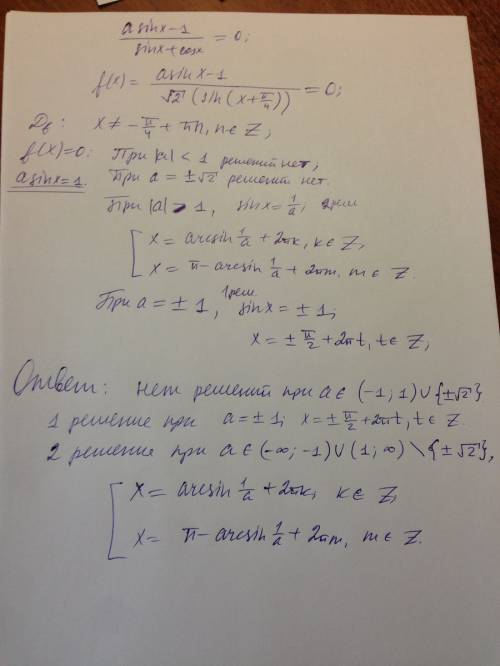 (a sinx − 1)/(sinx + cosx) = 0;
f(x) = (a sin x − 1)/(√2 (sin (x + π/4))) = 0;
D_f: x ≠ −π/4 + πn, n ∈ Z;
f(x)=0: При |a| < 1 решений нет;
a sinx = 1. При a = ±√2 решений нет.
При |a| > 1, sinx = 1/a; 2 реш
[ x = arcsin 1/a + 2πk, k ∈ Z,
x = π − arcsin 1/a + 2πm, m ∈ Z.
При a = ± 1, 1 реш. sinx = ± 1,
x = ± π/2 + 2πt, t ∈ Z,
Ответ: нет решений при a ∈ (−1; 1) ∪ {±√2}
1 решение при a = ± 1; x = ± π/2 + 2πt, t ∈ Z.
2 решение при a ∈ (−∞; −1) ∪ (1; ∞) \ {±√2},
[ x = arcsin 1/a + 2πk, k ∈ Z,
x = π − arcsin 1/a + 2πm, m ∈ Z.